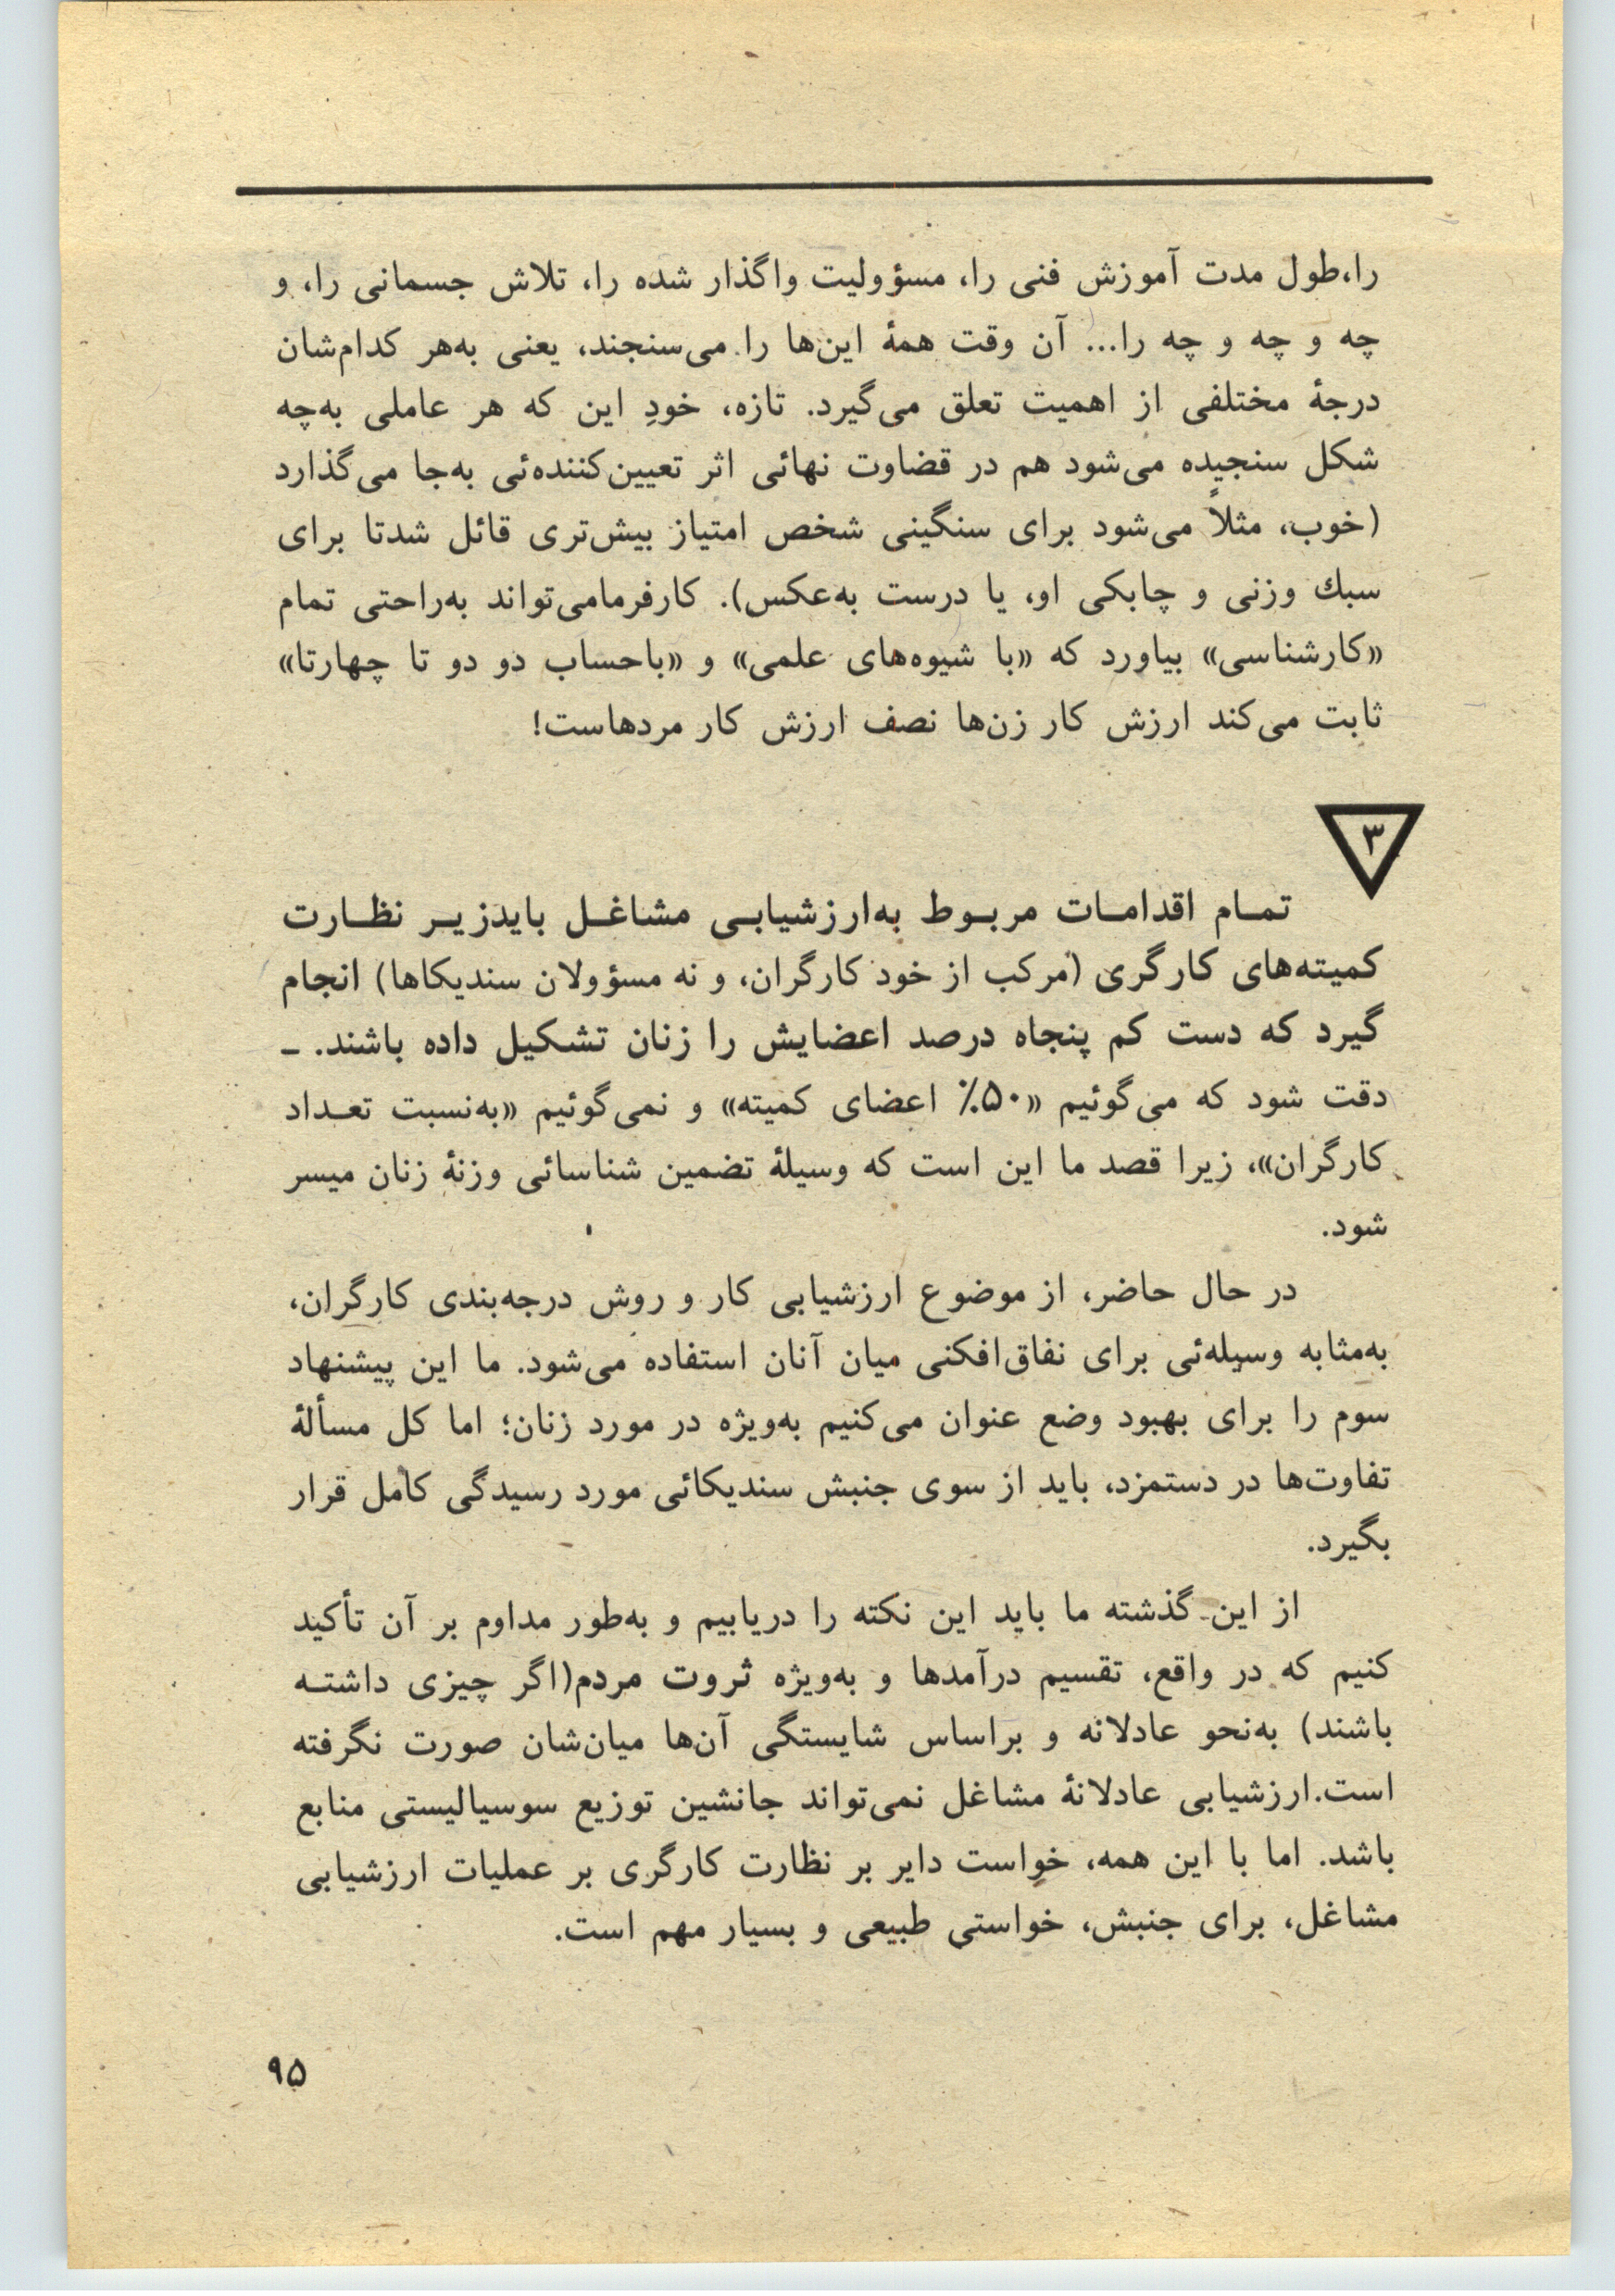 را،طول مدت آموزش فنی را، مسؤولیت واگذار شده را، تلاش جسمانی را، و
چه و چه و چه را... آن وقت همهٔ این‌ها را می‌سنجند، یعنی به‌هر کدام‌شان
درجهٔ مختلفی از اهمیت تعلق می‌گیرد. تازه، خودِ این که هر عاملی به‌چه
شکل سنجیده می‌شود هم در قضاوت نهائی اثر تعیین‌کننده‌ئی به‌جا می‌گذارد
(خوب، مثلاً می‌شود برای سنگینی شخص امتیاز بیش‌تری قائل شدتا برای
سبك وزنی و چابکی او، یا درست به‌عکس). کارفرمامی‌تواند به‌راحتی تمام
«کارشناسی» بیاورد که «با شیوه‌های علمی» و «باحساب دو دو تا چهارتا»
ثابت می‌کند ارزش کار زن‌ها نصف ارزش کار مردهاست!
۳
تمـام اقدامـات مربـوط به‌ارزشیابـی مشاغـل بایدزیـر نظـارت
کمیته‌های کارگری (مرکب از خود کارگران، و نه مسؤولان سندیکاها) انجام
گیرد که دست کم پنجاه درصد اعضایش را زنان تشکیل داده باشند. ـ
دقت شود که می‌گوئیم «۵۰٪ اعضای کمیته» و نمی‌گوئیم «به‌نسبت تعـداد
کارگران»، زیرا قصد ما این است که وسیلهٔ تضمین شناسائی وزنهٔ زنان میسر
شود.
در حال حاضر، از موضوع ارزشیابی کار و روش درجه‌بندی کارگران،
به‌مثابه وسیله‌ئی برای نفاق‌افکنی میان آنان استفاده می‌شود. ما این پیشنهاد
سوم را برای بهبود وضع عنوان می‌کنیم به‌ویژه در مورد زنان؛ اما کل مسألهٔ
تفاوت‌ها در دستمزد، باید از سوی جنبش سندیکائی مورد رسیدگی کامل قرار
بگیرد.
از این گذشته ما باید این نکته را دریابیم و به‌طور مداوم بر آن تأکید
کنیم که در واقع، تقسیم درآمدها و به‌ویژه ثروت مردم(اگر چیزی داشتـه
باشند) به‌نحو عادلانه و براساس شایستگی آن‌ها میان‌شان صورت نگرفته
است.ارزشیابی عادلانهٔ مشاغل نمی‌تواند جانشین توزیع سوسیالیستی منابع
باشد. اما با این همه، خواست دایر بر نظارت کارگری بر عملیات ارزشیابی
مشاغل، برای جنبش، خواستی طبیعی و بسیار مهم است.
۹۵